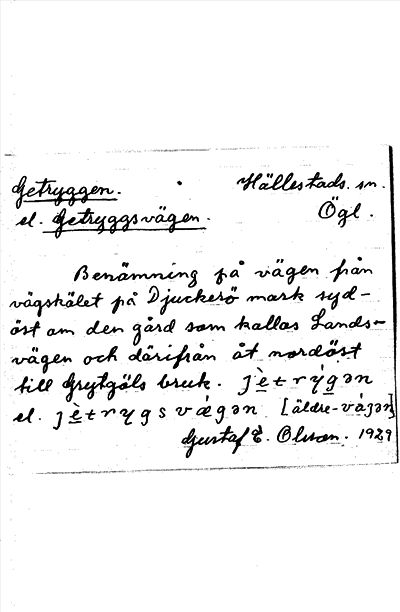 Getryggen. Hällestads. sn.
el. Getryggsvägen. Ögl.
Benämning på vägen från
vägskälet på Djuckerö mark syd-
öst om den gård som kallas Lands-
vägen och därifrån åt nordöst
till Grytgöls bruk. jè̱trýgən
el. jè̱trygsvǽgən [äldre -vájən]
Gustaf E. Olsson. 1929